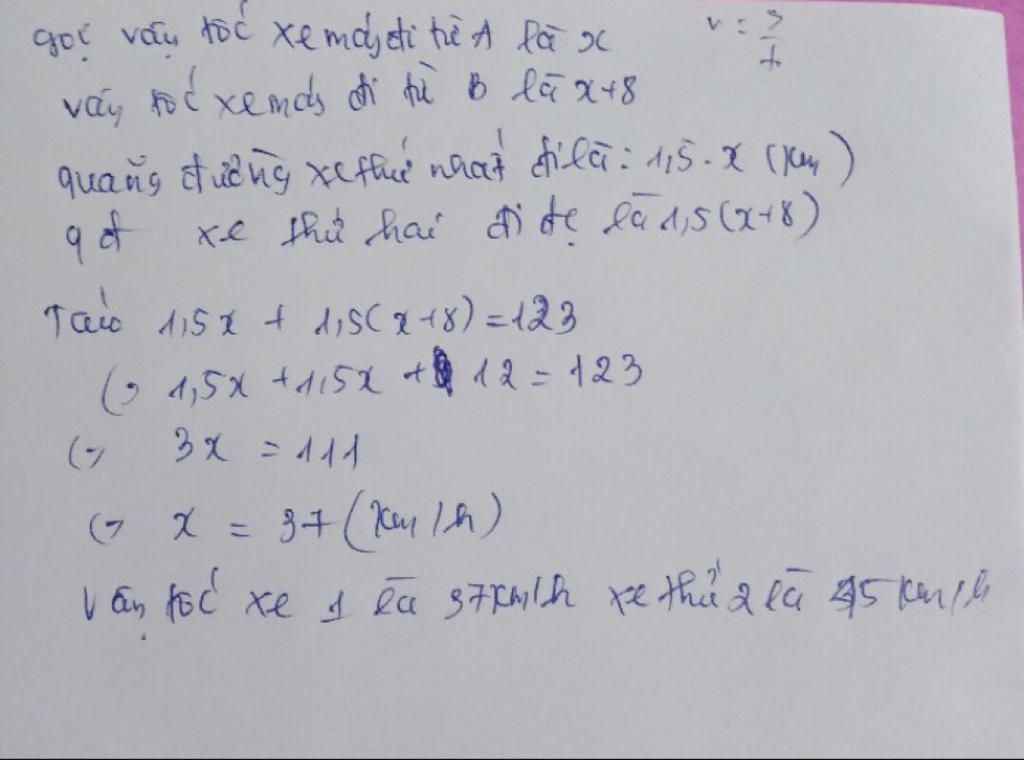 gọi vận tốc xe máy đi từ A là x
v = s/t
vận tốc xe máy đi từ B là x+8
quãng đường xe thứ nhất đi là: 1,5 . x (km)
qđ xe thứ hai đi đc là 1,5(x+8)
Ta có 1,5x + 1,5(x+8) = 123
(=) 1,5x + 1,5x + 12 = 123
(=) 3x = 111
(=) x = 37 (km/h)
Vận tốc xe 1 là 37km/h xe thứ 2 là 45 km/h